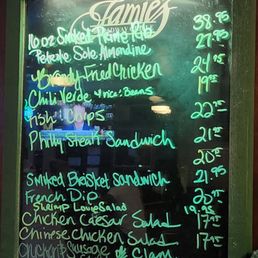 Jamie's
16 oz Smoked Prime Rib 38.95
Petrale Sole Almondine 27.95
Brandy Fried Chicken 24.95
Chili Verde w rice & Beans 19.95
Fish & Chips 22.95
Philly Steak Sandwich 21.95
20.95
Smoked Brisket Sandwich 21.95
French Dip
Shrimp Louie Salad 19.95
Chicken Caesar Salad 17.95
Chinese Chicken Salad 17.95
Chicken & Sausage
Clam